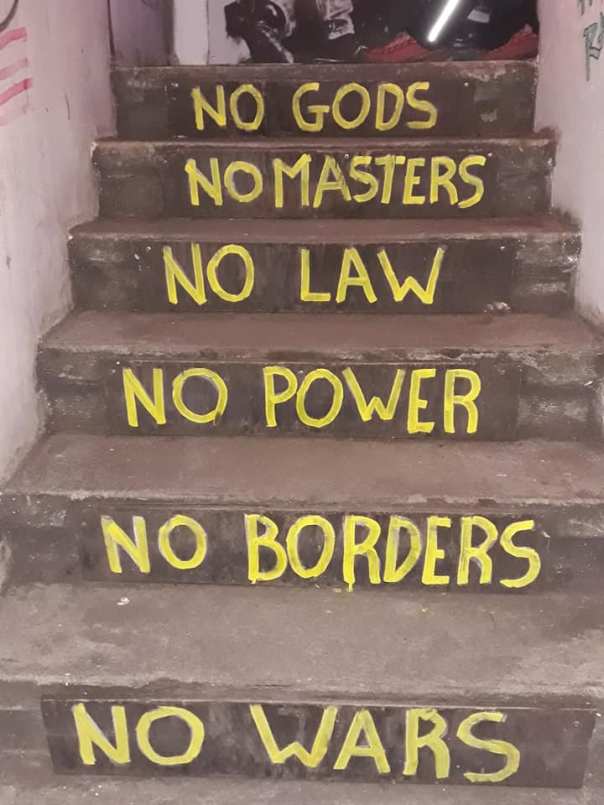 NO GODS
NO MASTERS
NO LAW
NO POWER
NO BORDERS
NO WARS